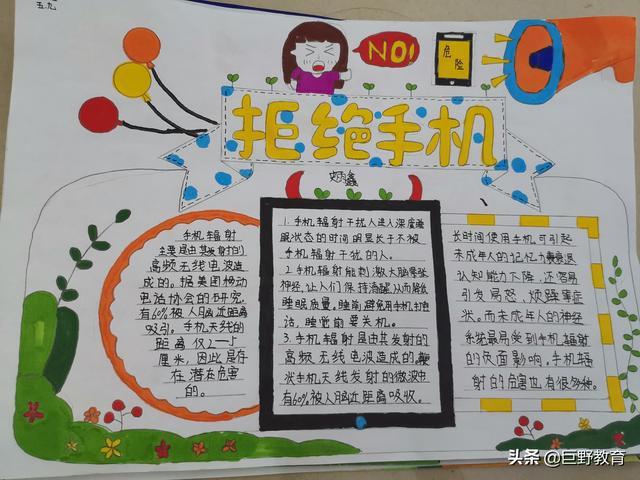 五.九
NO!
危险
拒绝手机
手机辐射
主要是由其发射的
高频无线电波造
成的。据美国移动
电话协会的研究,
有60%被人脑近距离
吸引。手机天线的
距离仅2—5
厘米,因此是存
在潜在危害
的。
1.手机辐射干扰人进入深度睡
眠状态的时间明显长于不被
手机辐射干扰的人。
2.手机辐射能刺激大脑紧张
神经,让人们保持清醒从而降低
睡眠质量。睡前避免用手机打电
话,睡觉前要关机。
3.手机辐射是由其发射的
高频无线电波造成的,
状手机天线发射的微波中
有60%被人脑近距离吸收。
长时间使用手机可引起
未成年人的记忆力衰退
认知能力下降,还容易
引发焗怒、烦躁等症
状。而未成年人的神经
系统最易受到手机辐射
的负面影响,手机辐
射的危害也有很多种。
头条 @巨野教育